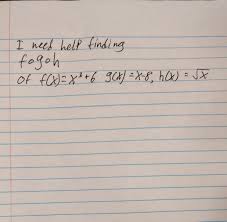 I need help finding
fogoh
of f(x)=x⁴+6 g(x)=x-8, h(x)=√x